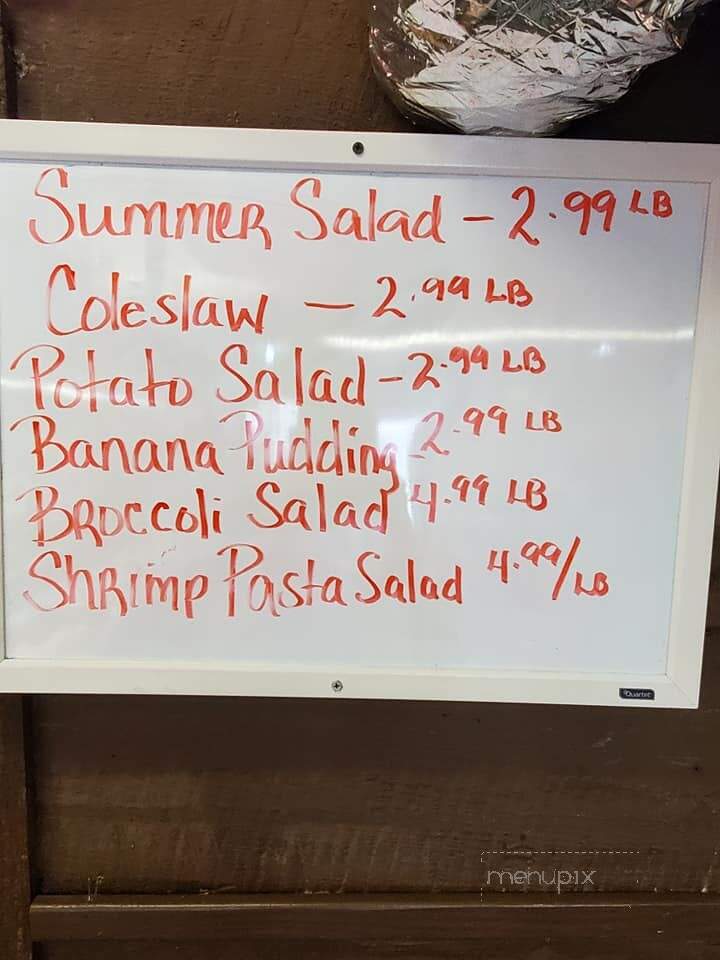 Summer Salad - 2.99 LB
Coleslaw - 2.99 LB
Potato Salad - 2.99 LB
Banana Pudding - 2.99 LB
Broccoli Salad 4.99 LB
Shrimp Pasta Salad 4.99/LB
Quartet
menupix